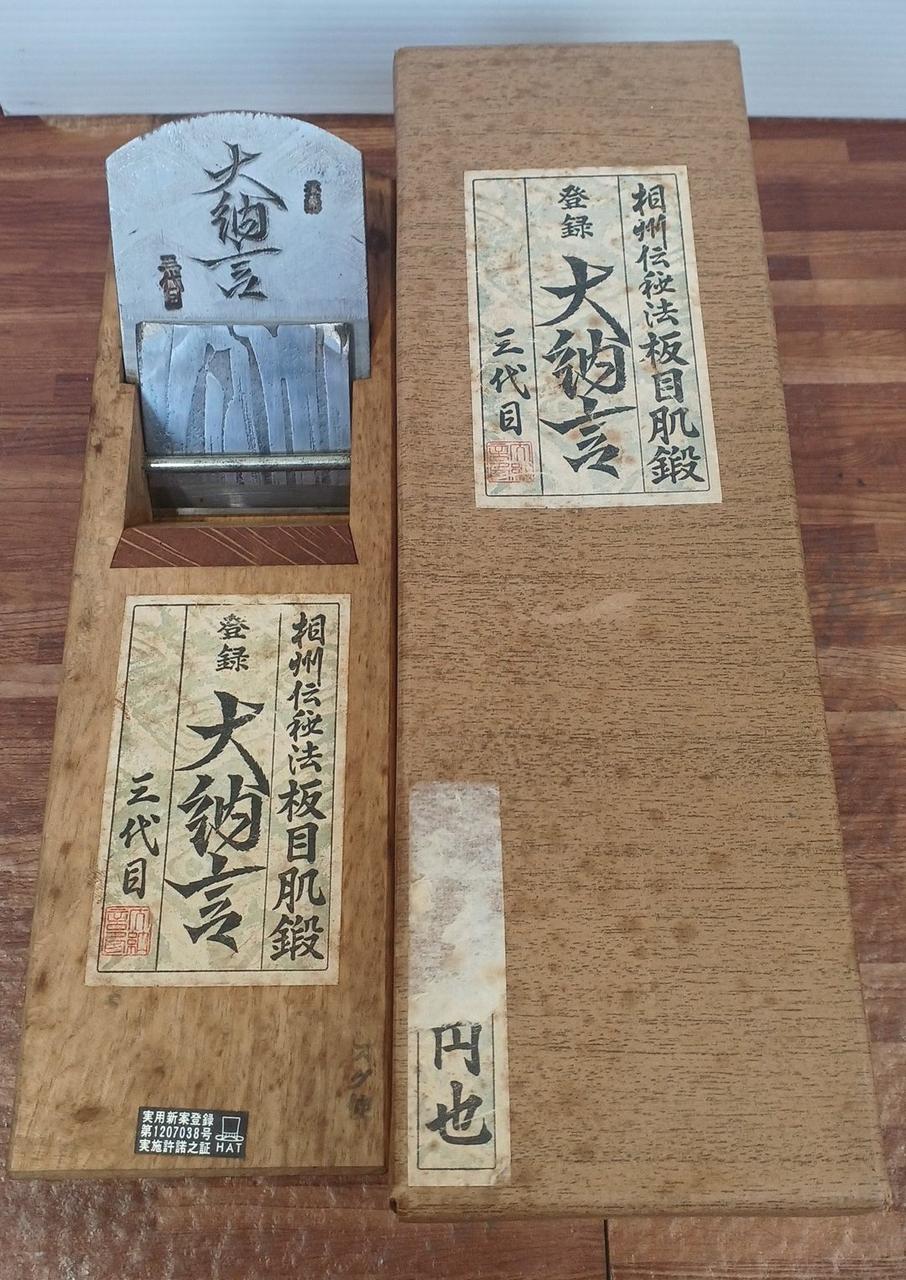 大納言
三代目
相州伝秘法板目肌鍛
登録
大納言
三代目
相州伝秘法板目肌鍛
登録
大納言
三代目
円也
実用新案登録
第1207038号
実施許諾之証
HAT